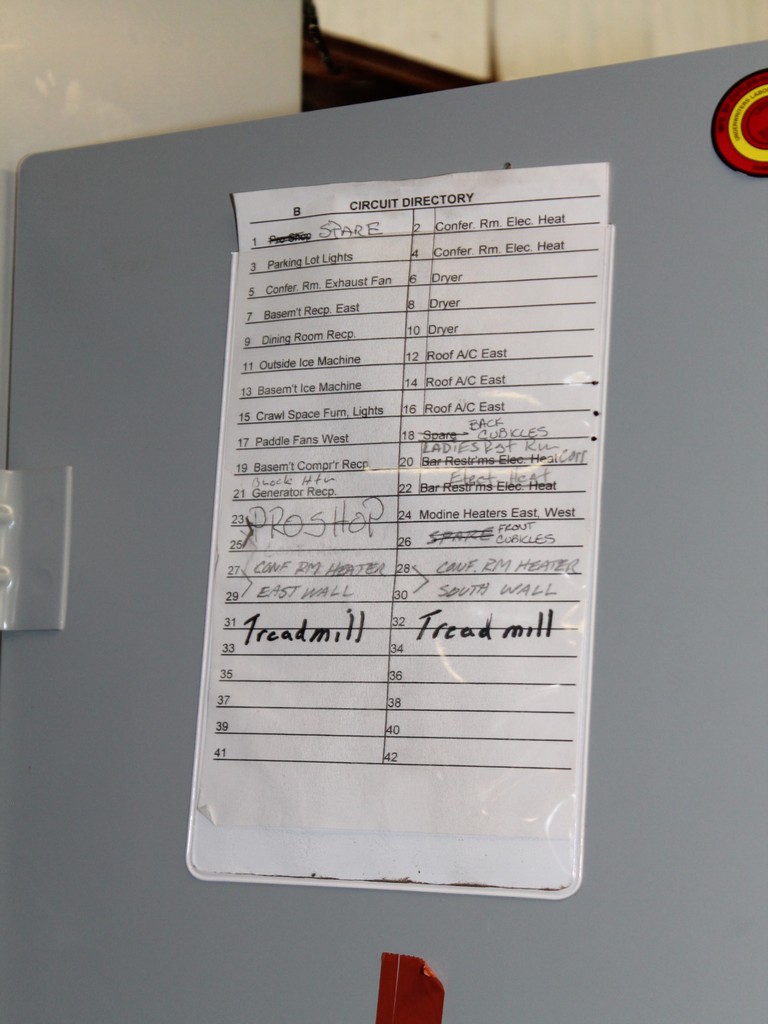 B CIRCUIT DIRECTORY
1 Pro Shop SPARE 2 Confer. Rm. Elec. Heat
3 Parking Lot Lights 4 Confer. Rm. Elec. Heat
5 Confer. Rm. Exhaust Fan 6 Dryer
7 Basem't Recp. East 8 Dryer
9 Dining Room Recp. 10 Dryer
11 Outside Ice Machine 12 Roof A/C East
13 Basem't Ice Machine 14 Roof A/C East
15 Crawl Space Furn, Lights 16 Roof A/C East
BACK
17 Paddle Fans West 18 Spare CUBICLES
LADIES Rst Rm
19 Basem't Compr'r Recp 20 Bar Restr'ms Elec. Heat
Block Htr Elect Heat
21 Generator Recp. 22 Bar Restr'ms Elec. Heat
23 PRO SHOP 24 Modine Heaters East, West
25 26 SPARE FRONT
CUBICLES
27 CONF RM HEATER 28 CONF. RM HEATER
29 EAST WALL 30 SOUTH WALL
31 Treadmill 32 Treadmill
33 34
35 36
37 38
39 40
41 42